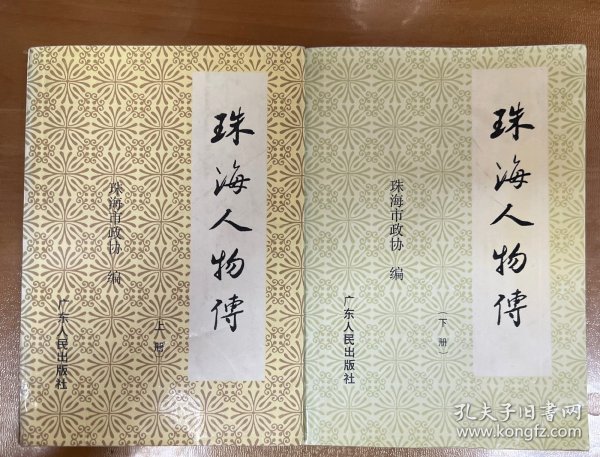 珠海人物傳
珠海市政协 编
上册
广东人民出版社
珠海人物傳
珠海市政协 编
(下册)
广东人民出版社
孔夫子旧书网
www.kongfz.com